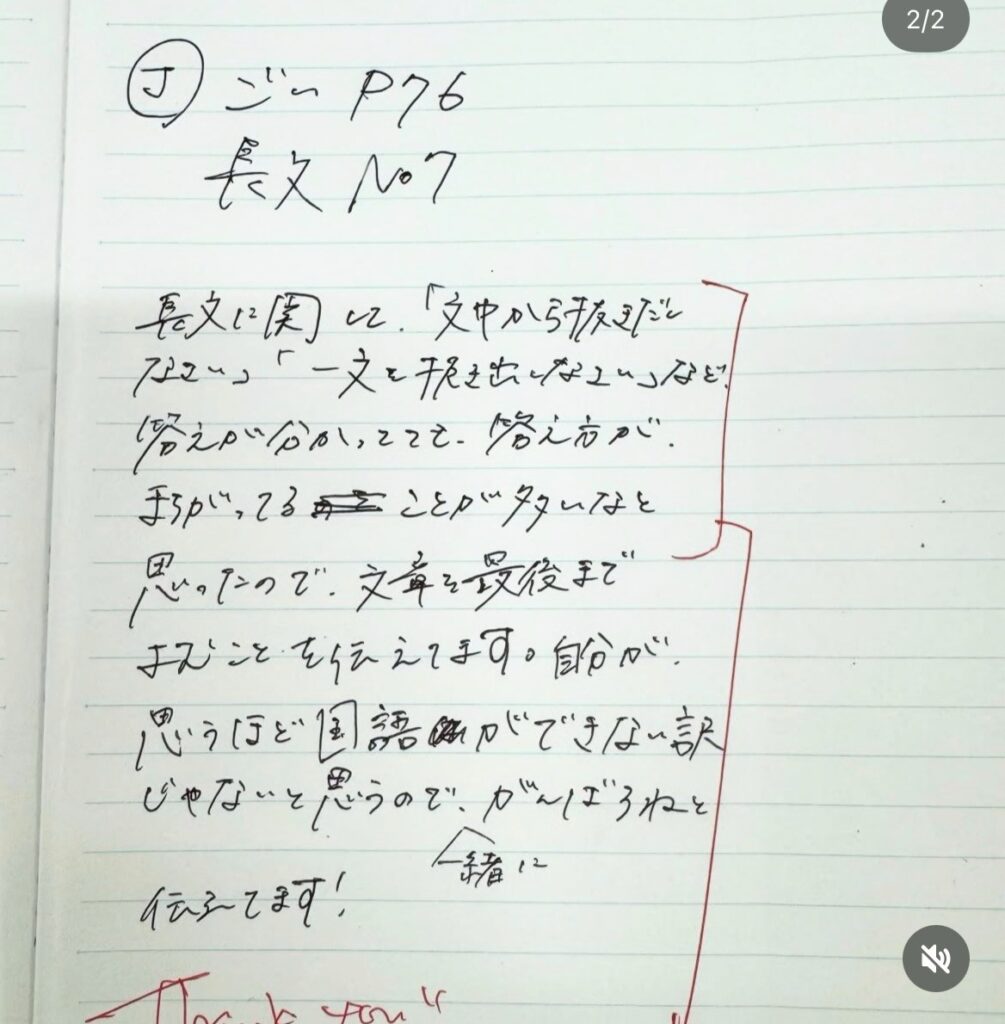 2/2
J ごい P76
長文 No7
長文に関して、「文中から抜きだし
なさい」「一文を抜き出しなさい」など、
答えが分かってても、答え方が、
まちがってる ことが多いなと
思ったので、文章を最後まで
よむことを伝えてます。自分が、
思うほど国語ができない訳
じゃないと思うので、がんばろうねと
一緒に
伝えてます!
Thank you"